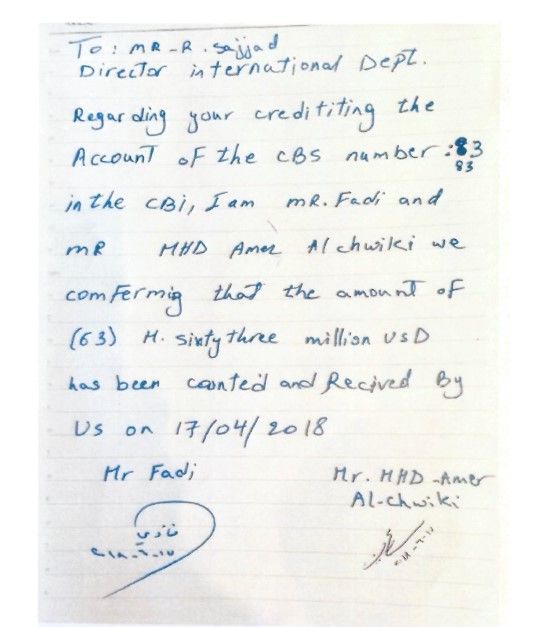 To: MR-R. sajjad
Director international Dept.
Regarding your credititing the
Account of the CBS number: 83
83
in the CBi, I am mR. Fadi and
mR MHD Amer Al chwiki we
comfermig that the amount of
(63) M. sixty three million USD
has been counted and Recived By
Us on 17/04/2018
Mr Fadi
Mr. MHD-Amer
Al-chwiki
فادي